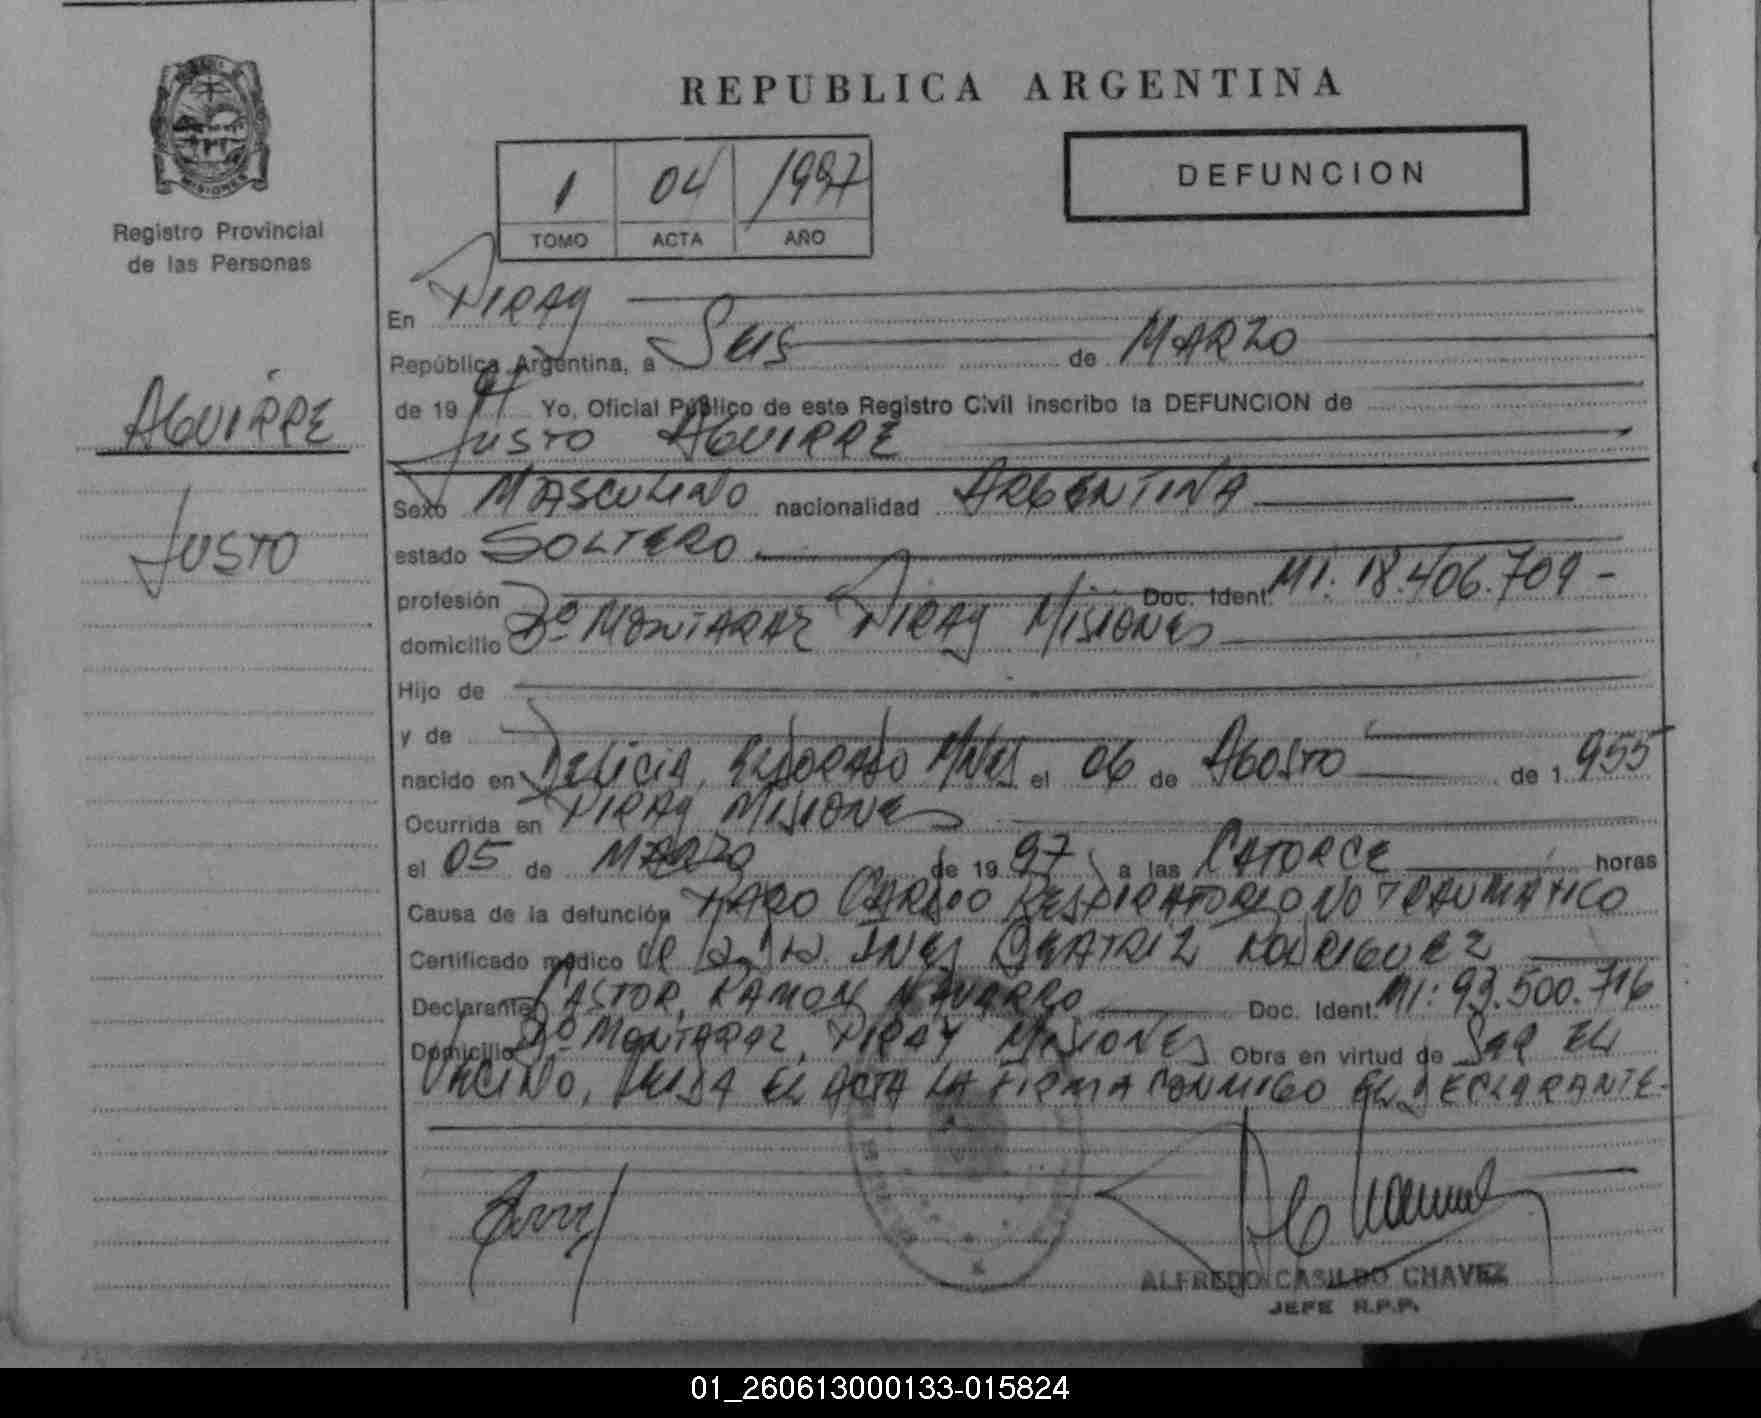 REPUBLICA ARGENTINA
DEFUNCION
1 04 1997
TOMO ACTA AÑO
MISIONES
Registro Provincial
de las Personas
AGUIRRE
JUSTO
En PIRAY
República Argentina, a Seis de MARZO
de 19 97 Yo, Oficial Público de este Registro Civil inscribo la DEFUNCION de
JUSTO AGUIRRE
Sexo MASCULINO nacionalidad ARGENTINA
estado SOLTERO
profesión Doc. Ident. MI: 18.406.709 -
domicilio Bº MONTARAZ PIRAY MISIONES
Hijo de
y de
nacido en DELICIA, ELDORADO MNES el 06 de AGOSTO de 1.955
Ocurrida en PIRAY MISIONES
el 05 de MARZO de 19 97 a las CATORCE horas
Causa de la defunción PARO CARDIO RESPIRATORIO NO TRAUMATICO
Certificado médico de la Dra. INES BEATRIZ RODRIGUEZ
Declarante CASTOR, RAMON NAVARRO Doc. Ident. MI: 93.500.716
Domicilio Bº MONTARAZ, PIRAY MISIONES Obra en virtud de SER EL
VECINO, LEIDA EL ACTA LA FIRMA CONMIGO EL DECLARANTE-
ALFREDO CASILDO CHAVEZ
JEFE R.P.P.
01_260613000133-015824